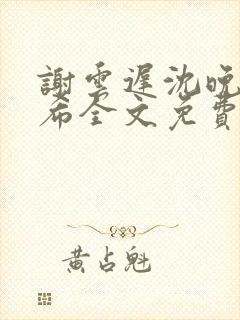 謝雲遲沈晚
希全文免費
黃占魁